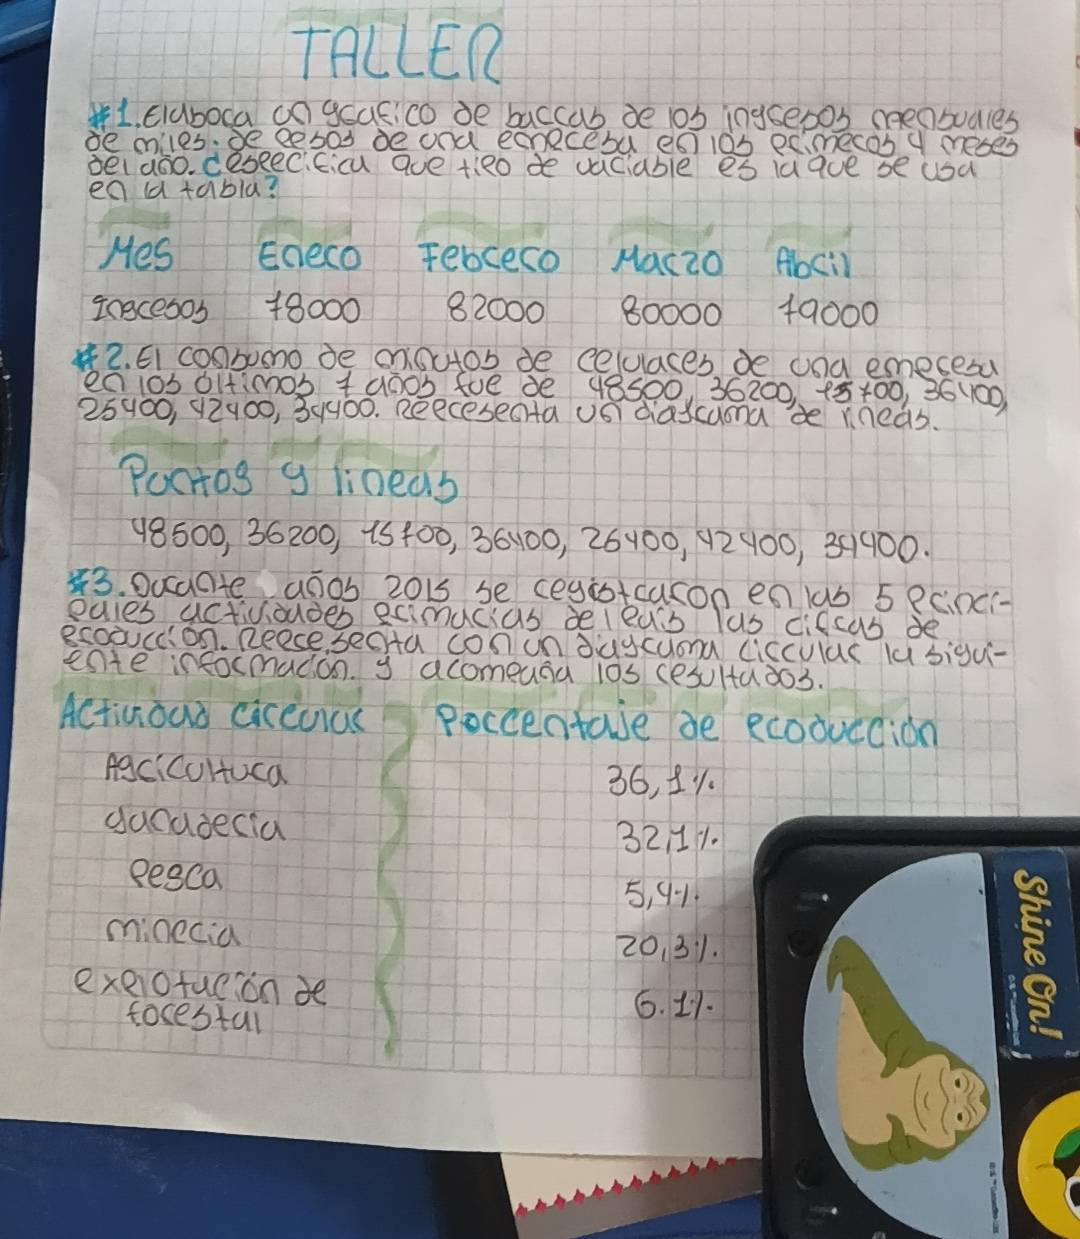 TALLER
#1. Elabora un grafico de barras de los ingresos mensuales
de miles. de pesos de una empresa en los primeros 4 meses
del año. despecifica que tipo de variable es la que se usa
en la tabla?
Mes Enero Febrero Marzo Abril
Ingresos 78000 82000 80000 79000
#2. El consumo de minutos de celulares de una empresa
en los últimos 7 años fue de 48500, 36200, 15700, 36400,
25400, 42400, 34400. Representa un diagrama de lineas.
Puntos y lineas
48500, 36200, 15700, 36400, 26400, 42400, 34400.
#3. Durante años 2015 se registraron en las 5 princi-
pales actividades primarias del país las cifras de
producción. Representa con un diagrama circular la sigui-
ente información. y acompaña los resultados.
Actividad circular Porcentaje de producción
Agricultura 36,1%
ganaderia 32,1%.
pesca 5,4%.
mineria 20,3%.
explotación de
forestal 6.1%.
Shine On!